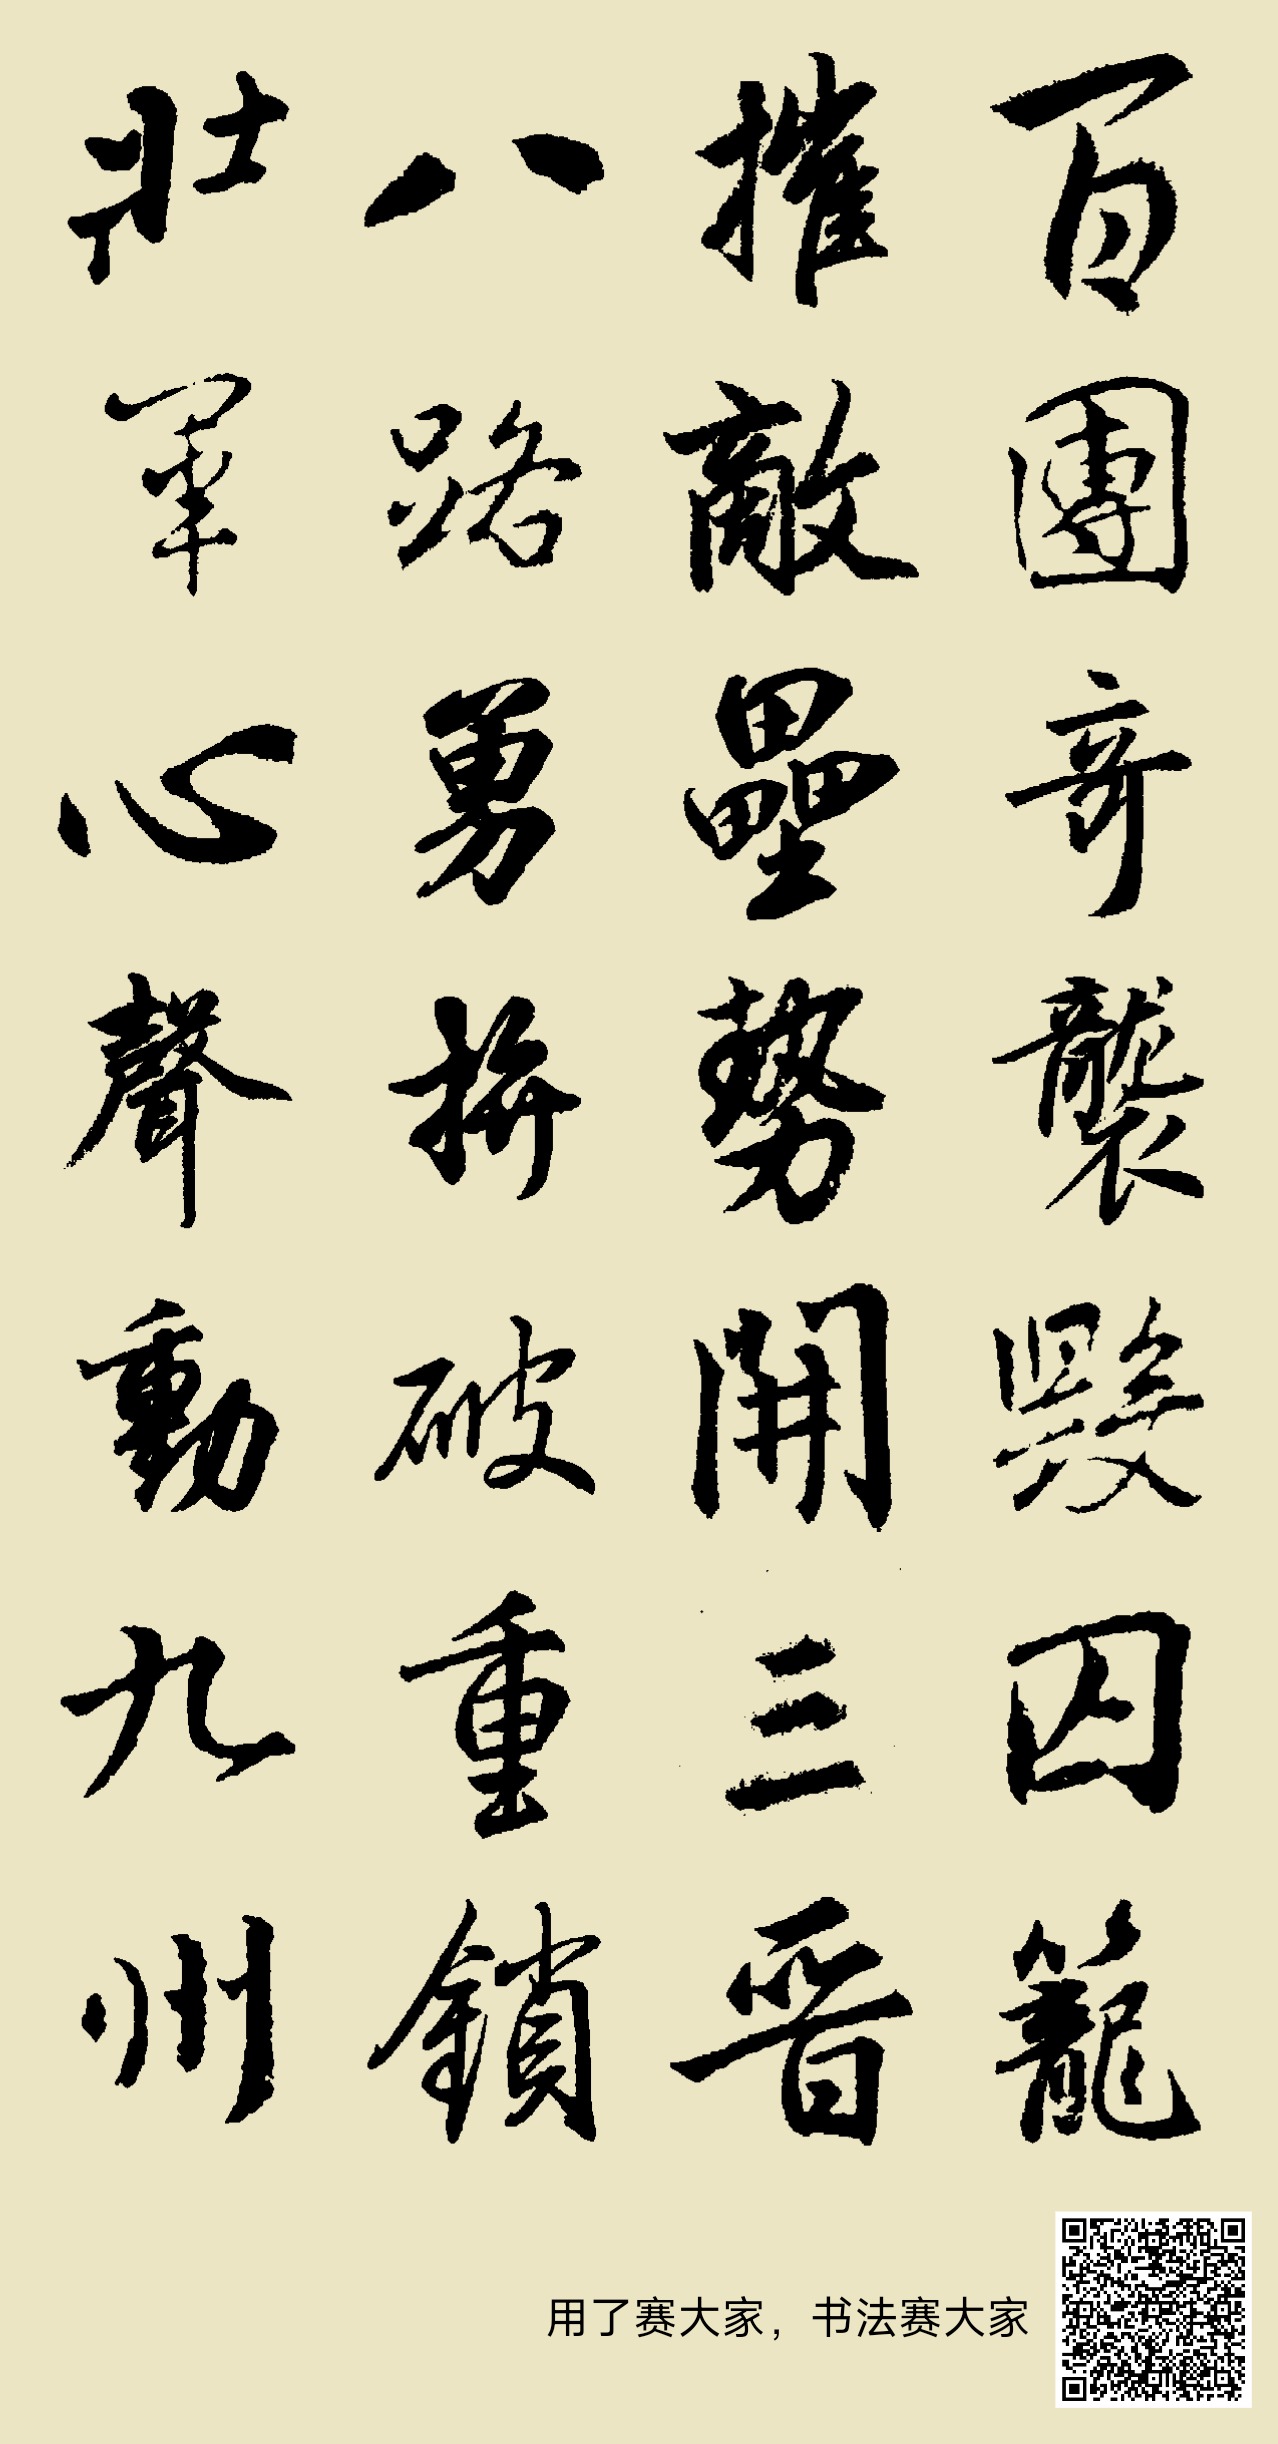 百團奇襲毀囚籠
摧敵壘勢開三晉
八路勇拚破重鎖
壯軍心聲動九州
用了赛大家，书法赛大家